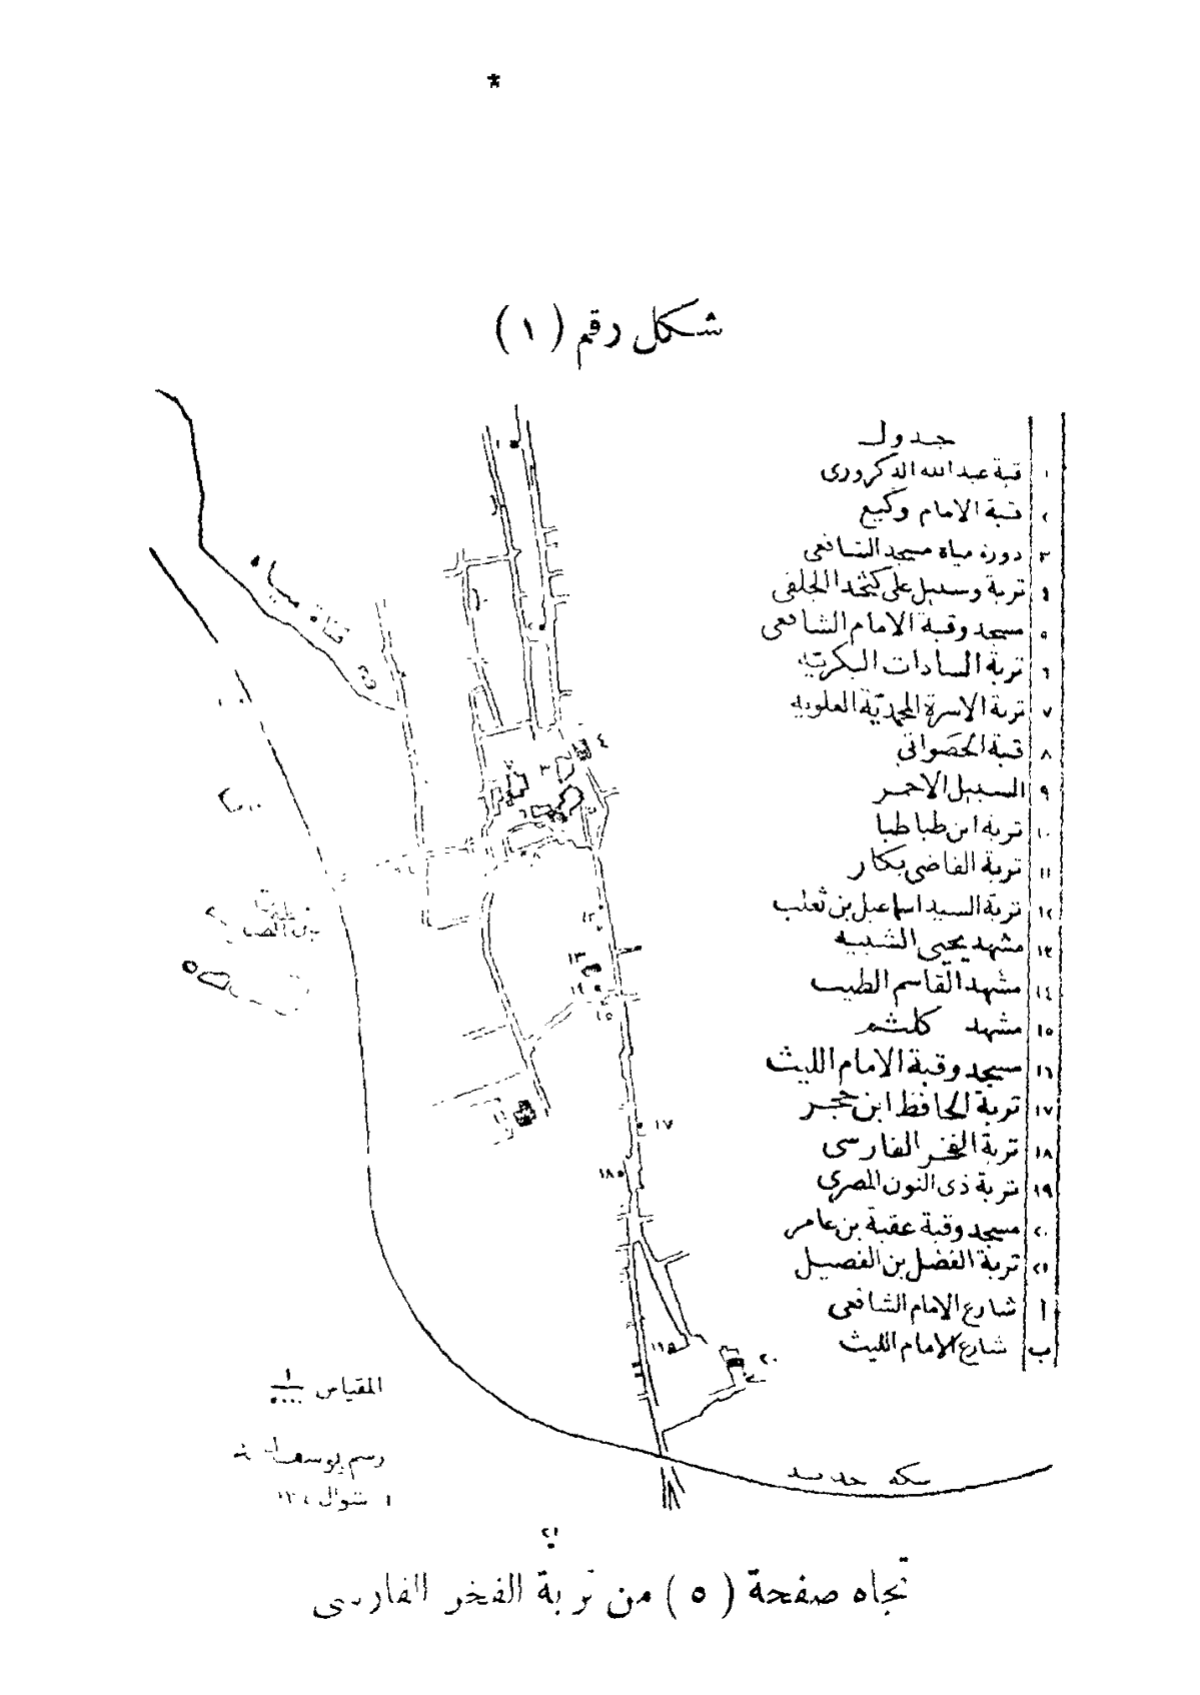 *
شكل رقم (١)
جدول
١ قبة عبد الله الدكرورى
٢ قبة الامام وكيع
٣ دورة مياه مسجد الشافعى
٤ تربة وسبيل على كتخدا الجلفى
٥ مسجد وقبة الامام الشافعى
٦ تربة السادات البكرية
٧ تربة الاسرة المحمدية العلوية
٨ قبة الحصواتى
٩ السبيل الاحمر
١٠ تربة ابن طباطبا
١١ تربة القاضى بكار
١٢ تربة السيد اسماعيل بن ثعلب
١٣ مشهد يحيى الشبيه
١٤ مشهد القاسم الطيب
١٥ مشهد كلثم
١٦ مسجد وقبة الامام الليث
١٧ تربة الحافظ ابن حجر
١٨ تربة الفخر الفارسى
١٩ تربة ذى النون المصرى
٢٠ مسجد وقبة عقبة بن عامر
٢١ تربة الفضل بن الفضيل
أ شارع الامام الشافعى
ب شارع الامام الليث
قناة مياه
٤
٣
١٢
١٣
١٤
١٥
١٧
١٨
١٩
٢٠
المقياس ١/٥٠٠٠
رسم يوسف
شوال
سكة حديد
٢١
تجاه صفحة (٥) من تربة الفخر الفارسى